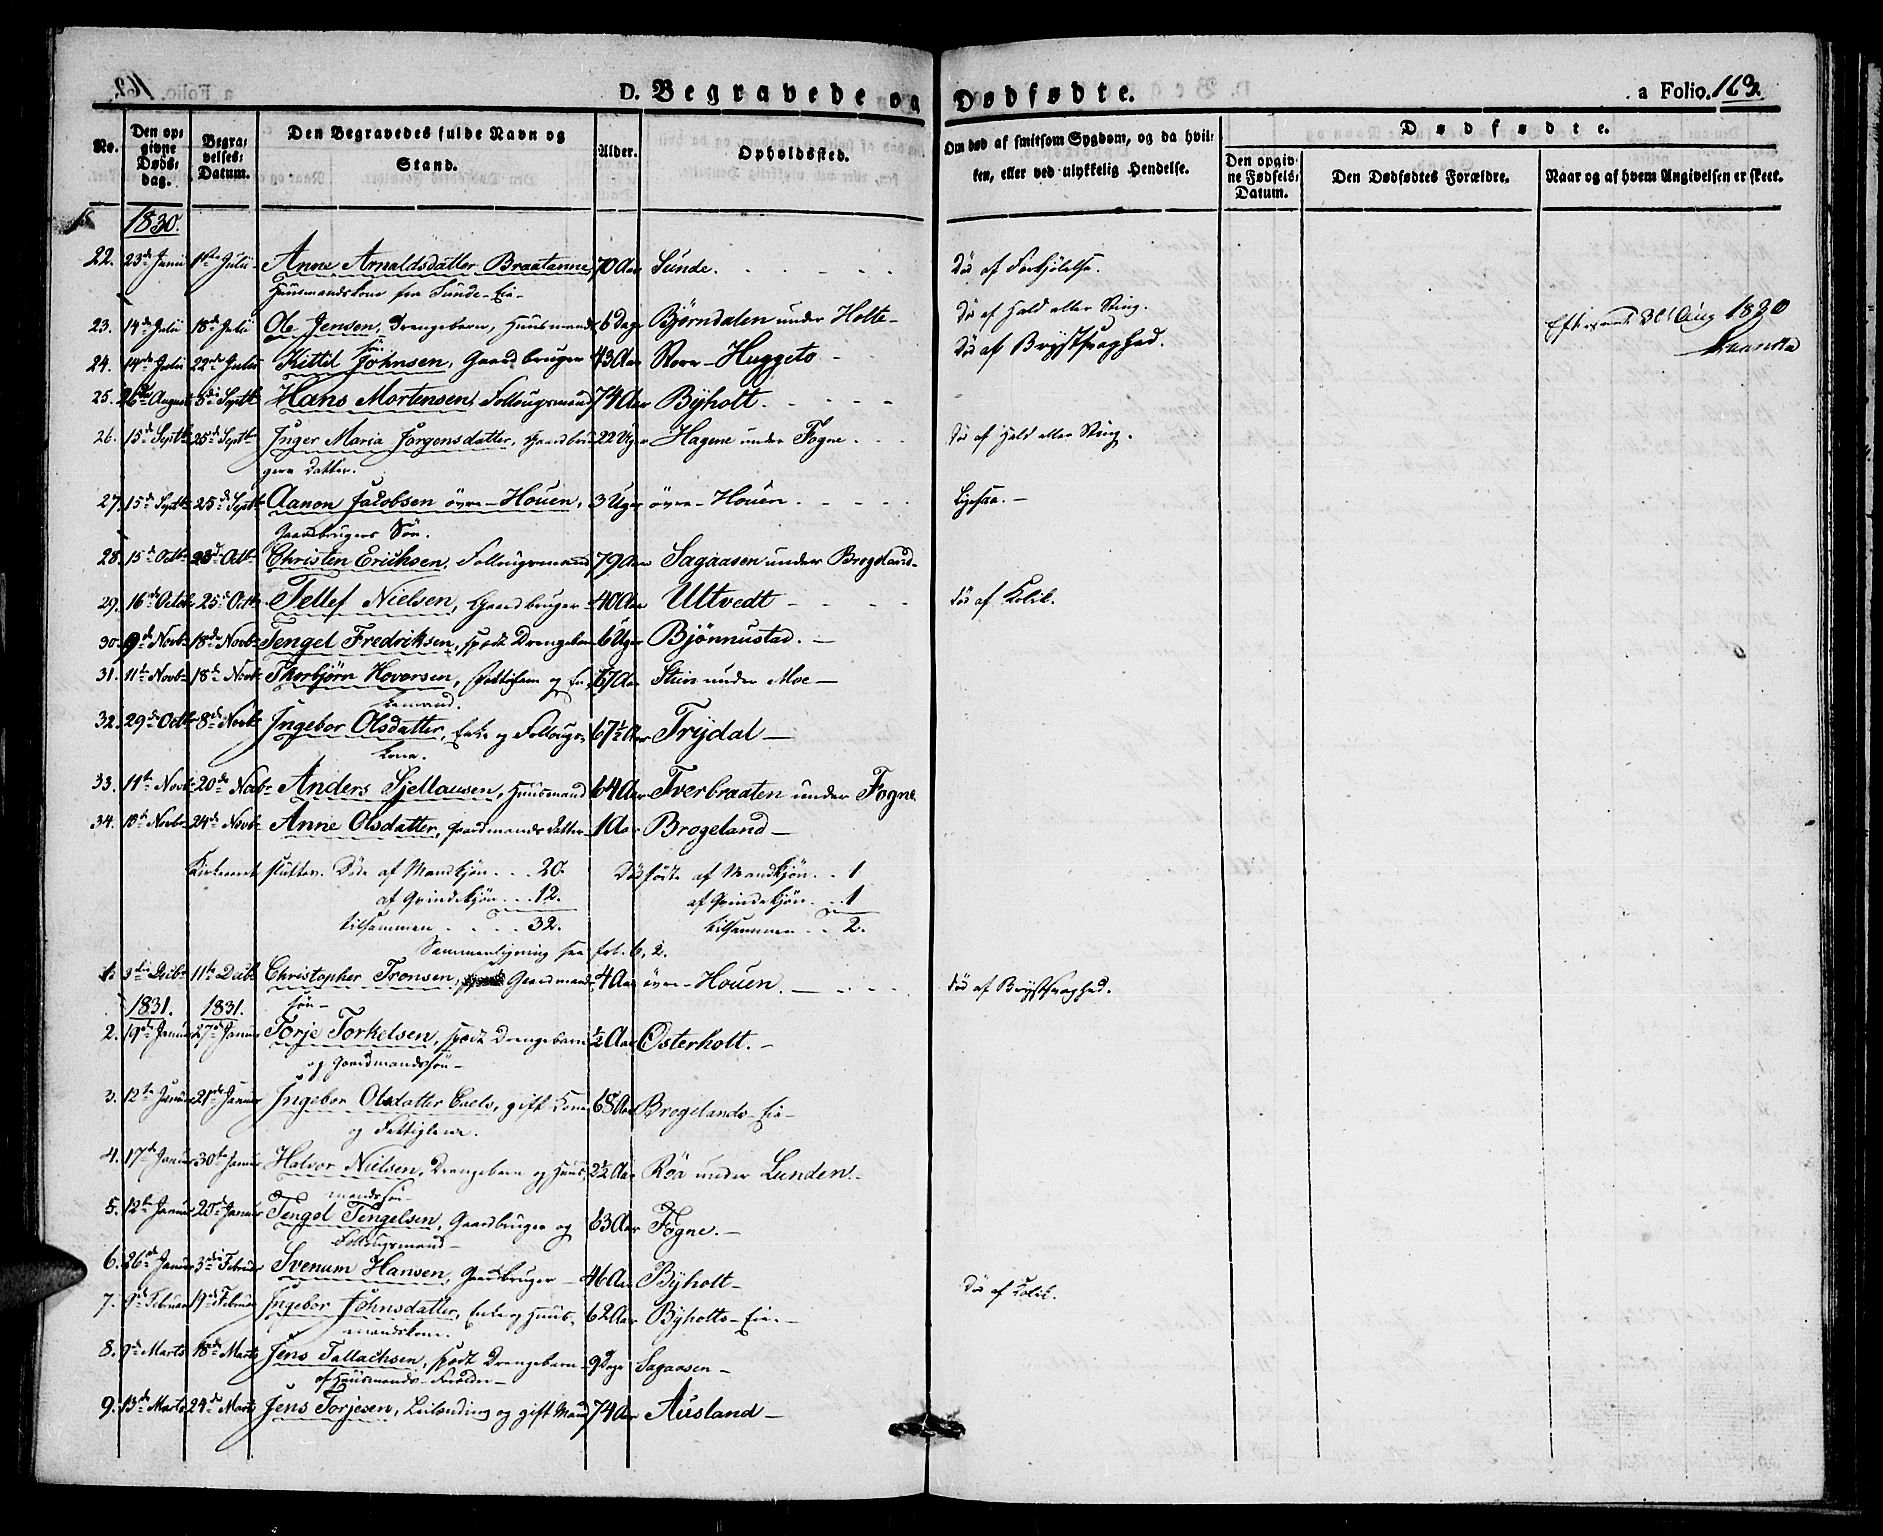 D. Begravede og Dødfødte. a Folio. 163.
No. Den opgivne Dødsdag. Begravelses Datum. Den Begravedes fulde Navn og Stand. Alder. Opholdssted. Om død af smitsom Sygdom, og da hvilken, eller ved ulykkelig Hendelse. Dødfødte.
Den opgivne Fødsels Datum. Den Dødfødtes Forældre. Naar og af hvem Angivelsen er skeet.
1830.
22. 23de Juni 1ste Julii Anne Arnaldsdatter Braatanne, 70 Aar Sunde. Død af Forkjølelse.
Huusmandskone fra Sunde-Eie
23. 14de Julii 18de Julii Ole Jensen, Drengebarn, Huusmands 6 Dage Björndalen under Holte Død af Hald eller Sting. 1830
Søn
24. 14de Julii 22de Julii Kittil Johnsen, Gaardbruger 43 Aar Store-Huggeto Død af Brystsvaghed.
25. 26de August 5te Septb Hans Mortensen, Follougsmand 74 Aar Byholt.
26. 15de Septb 25de Septb Inger Maria Jorgensdatter, Gaardbru- 22 Uger Hagene under Fogne. Død af Hald eller Sting.
gers Datter.
27. 15de Septb 25de Septb Aanon Jacobsen øvre-Houen, 3 Uger øvre-Houen. Ligesaa.
Gaardbrugers Søn.
28. 15de Octb 23de Octb Christen Erichsen, Follougsmand 79 Aar Sagaasen under Brogeland
29. 16de Octob 25de Octb Tellef Nielsen, Gaardbruger 40 Aar Ultvedt Død af Kolik.
30. 9de Novb 18de Novb Tengel Fredriksen, spædt Drengebarn 6 Uger Bjønnustad.
31. 11te Novb 18de Novb Thorbjørn Hovorsen, Fattiglem og En- 67 Aar Steen under Moe
kemand.
32. 29de Octb 8de Novb Ingebor Olsdatter, Enke og Follougs- 67½ Aar Trydal
kone.
33. 11te Novb 20de Novb Anders Sjellausen, Huusmand 64 Aar Tverbraaten under Fogne.
34. 18de Novb 24de Novb Anne Olsdatter, Gaardmands Datter 1 Aar Brogeland
Kirkeaaret slutter. Døde af Mandkjøn 20. Dødfødte af Mandkjøn 1
af Qvindekjøn 12. af Qvindekjøn 1
tilsammen 32. tilsammen 2.
Sammenligning see fol. 6, 2.
1. 3die Decbr 11te Decb Christopher Tronsen, Gaardmands 4 Aar øvre-Houen. Død af Brystsvaghed.
1831. 1831. søn
2. 19de Januar 27de Januar Torje Torkelsen, spædt Drengebarn ½ Aar Østerholt.
og Gaardmandssøn
3. 12te Januar 21de Januar Ingebor Olsdatter, gift Kone 68 Aar Brogelands-Eie
og Fattiglem.
4. 17de Januar 30te Januar Halvor Nielsen, Drengebarn og Huus- 2½ Aar Röd under Lunden.
mandssøn
5. 12te Januar Januar Tengel Tengelsen, Gaardbruger og 63 Aar Fogne.
Follougsmand
6. 26de Januar 3die Februar Svenum Hansen, Gaardbruger 46 Aar Byholt Død af Kolik.
7. 9de Februar 19de Februar Ingebor Johnsdatter, Enke og Huus- 62 Aar Byholts-Eie.
mandskone.
8. 9de Marts 18de Marts Jens Tallachsen, spædt Drengebarn 9 Dage Sagaasen
af Huusmands-Forældre
9. 13de Marts 24de Marts Jens Torjesen, Leilænding og gift Mand 74 Aar Ausland